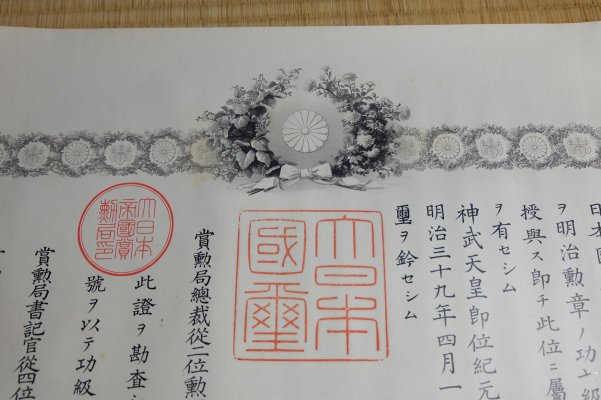 日本
ヲ明治勲章ノ功七級
授與ス即チ此位ニ屬
ヲ有セシム
神武天皇即位紀元
明治三十九年四月一
璽ヲ鈐セシム
大日本
國璽
賞勲局總裁從二位勲
大日本
帝國賞
勲局印
此證ヲ勘査
號ヲ以テ功級
賞勲局書記官從四位